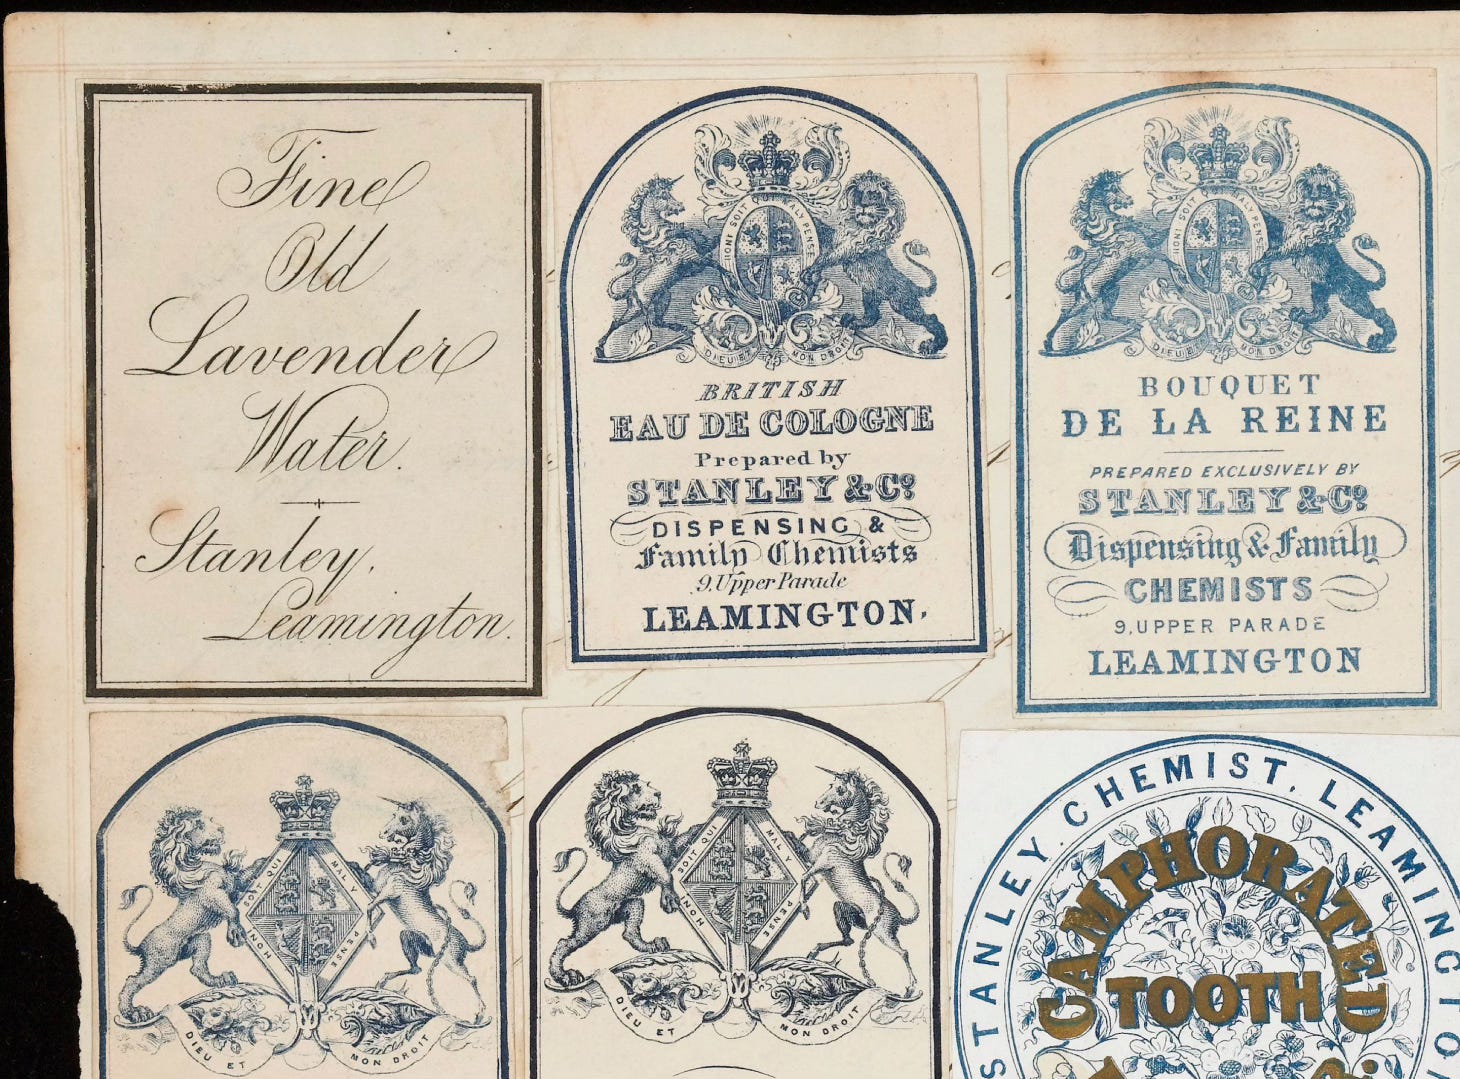 Fine
Old
Lavender
Water.
Stanley,
Leamington.
HONI SOIT QUI MAL Y PENSE
DIEU ET MON DROIT
BRITISH
EAU DE COLOGNE
Prepared by
STANLEY & Co.
DISPENSING &
Family Chemists
9, Upper Parade
LEAMINGTON.
HONI SOIT QUI MAL Y PENSE
DIEU ET MON DROIT
BOUQUET
DE LA REINE
PREPARED EXCLUSIVELY BY
STANLEY & Co.
Dispensing & Family
CHEMISTS
9, UPPER PARADE
LEAMINGTON
HONI SOIT QUI MAL Y PENSE
DIEU ET MON DROIT
HONI SOIT QUI MAL Y PENSE
DIEU ET MON DROIT
STANLEY, CHEMIST, LEAMINGTON
CAMPHORATED
TOOTH